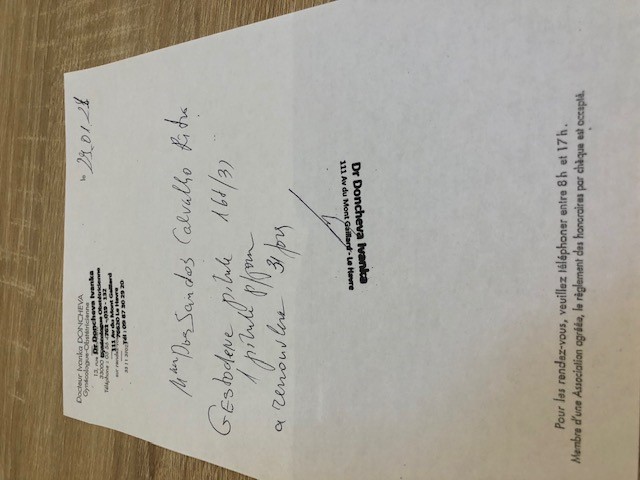 Docteur Ivanka DONCHEVA
Gynécologue-Obstétricienne
13, rue
33000
Téléphone : 05 56
sur rendez-vous
Dr Doncheva Ivanka
Gynécologue Obstétricienne
111 Av du Mont Gaillard
76620 Le Havre
Tél : 09 87 30 29 20
le 29.01.24
Mme Dos Sandos Calvalho Rita
GEstodene pilule 1bt/3)
1 pilule p/jour
a renouveler
Dr Doncheva Ivanka
111 Av du Mont Gaillard - Le Havre
Pour les rendez-vous, veuillez téléphoner entre 8 h et 17 h.
Membre d'une Association agréée, le règlement des honoraires par chèque est accepté.